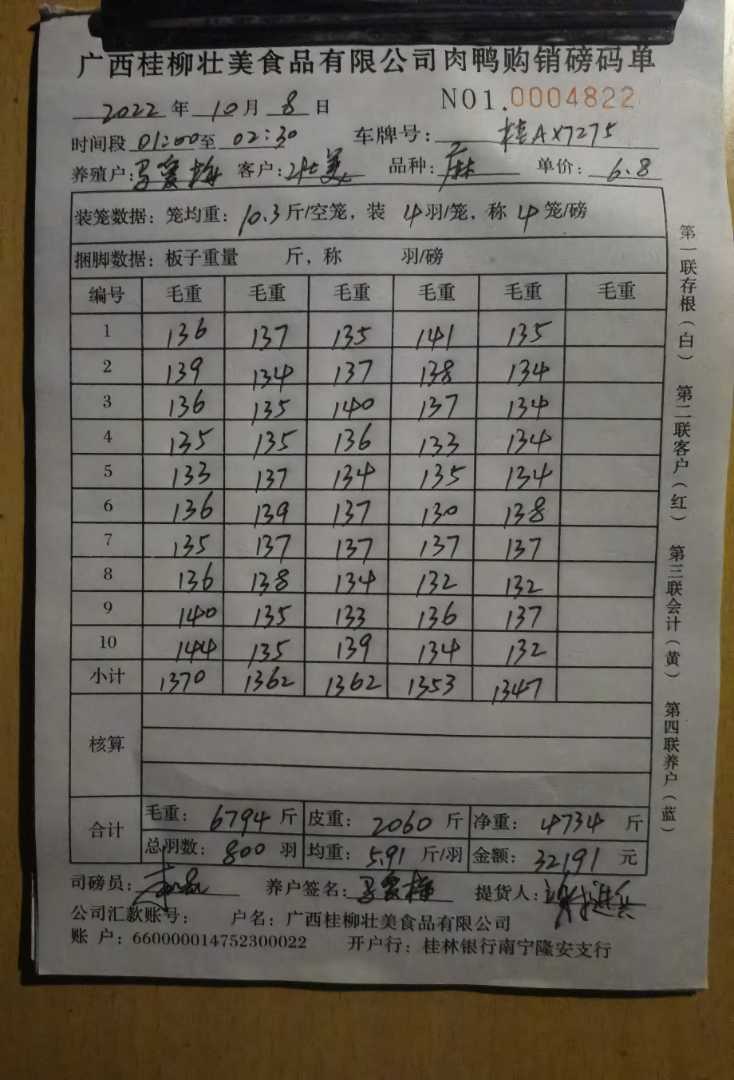 广西桂柳壮美食品有限公司肉鸭购销磅码单
2022 年 10 月 8 日 NO1.0004822
时间段 01:00至 02:30 车牌号: 桂AX7275
养殖户: 客户: 壮美 品种: 麻 单价: 6.8
装笼数据: 笼均重: 10.3 斤/空笼, 装 4 羽/笼, 称 4 笼/磅
捆脚数据: 板子重量 斤, 称 羽/磅
编号 毛重 毛重 毛重 毛重 毛重 毛重
1 136 137 135 141 135
2 139 134 137 138 134
3 136 135 140 137 134
4 135 135 136 133 134
5 133 137 134 135 134
6 136 139 137 130 138
7 135 137 137 137 137
8 136 138 134 132 132
9 140 135 133 136 137
10 144 135 139 134 132
小计 1370 1362 1362 1353 1347
核算
合计 毛重: 6794 斤 皮重: 2060 斤 净重: 4734 斤
总羽数: 800 羽 均重: 5.91 斤/羽 金额: 32191 元
司磅员: 养户签名: 提货人:
公司汇款账号: 户名: 广西桂柳壮美食品有限公司
账 户: 660000014752300022 开户行: 桂林银行南宁隆安支行
第一联存根(白) 第二联客户(红) 第三联会计(黄) 第四联养户(蓝)